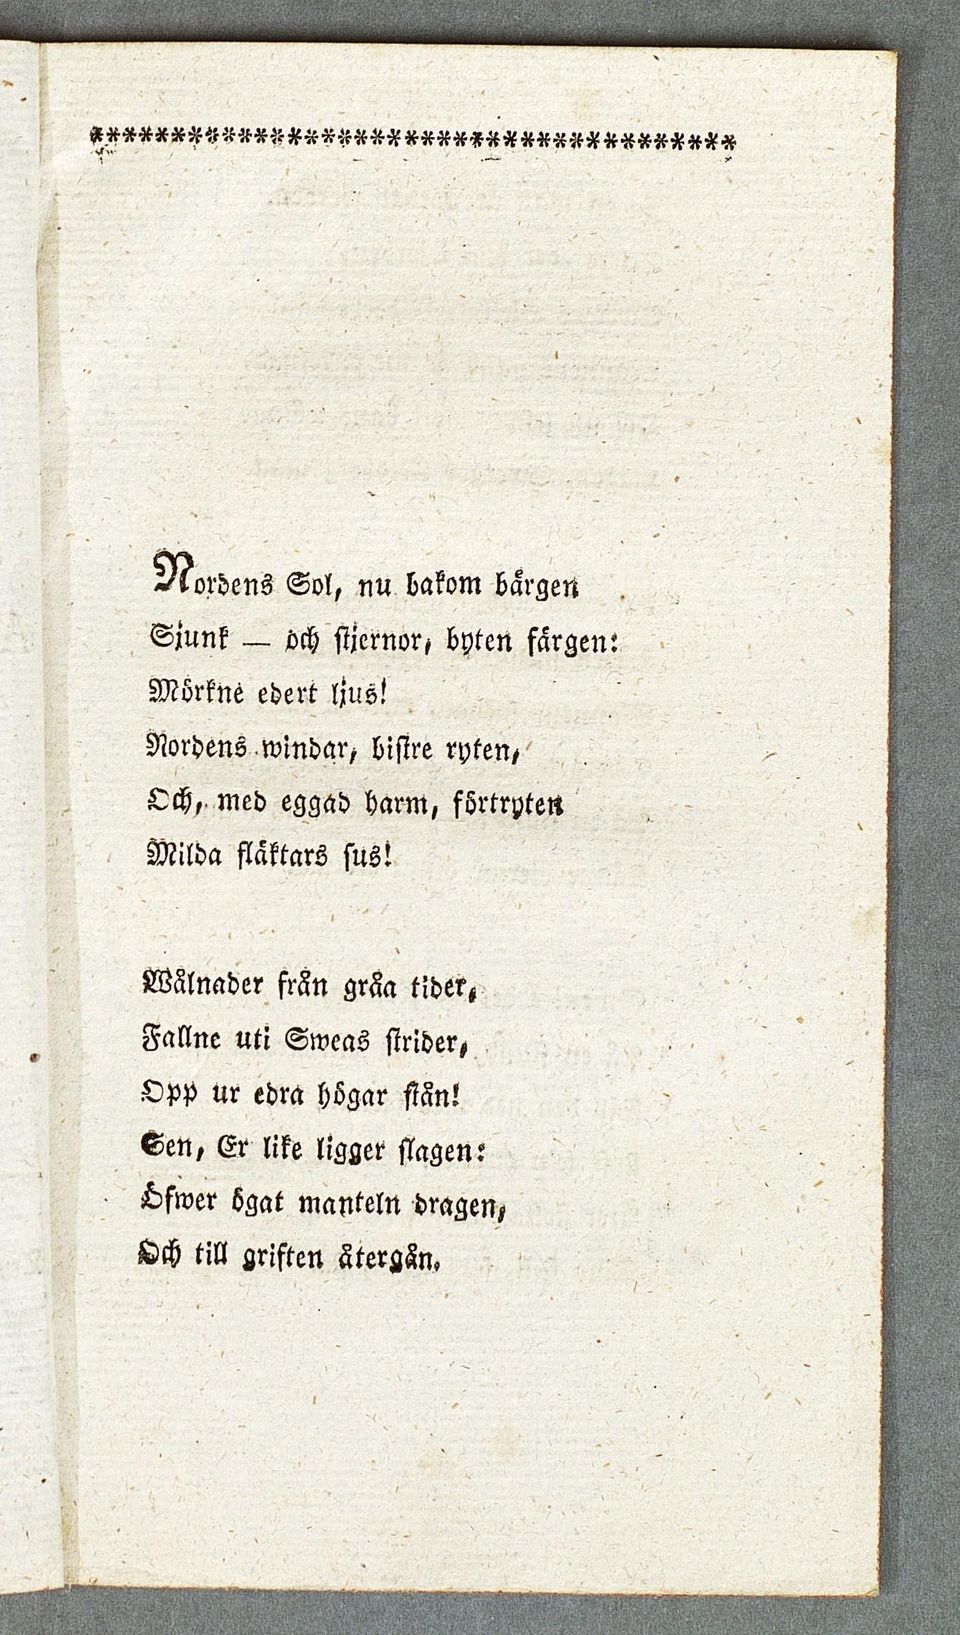 ***************************************
Nordens Sol, nu bakom bärgen
Sjunk — och stjernor, byten färgen:
Mörkne edert ljus!
Nordens windar, bistre ryten,
Och, med eggad harm, förtryten
Milda fläktars sus!
Wålnader från gråa tider,
Fallne uti Sweas strider,
Opp ur edra högar stån!
Sen, Er like ligger slagen:
Öfwer ögat manteln dragen,
Och till griften återgån.